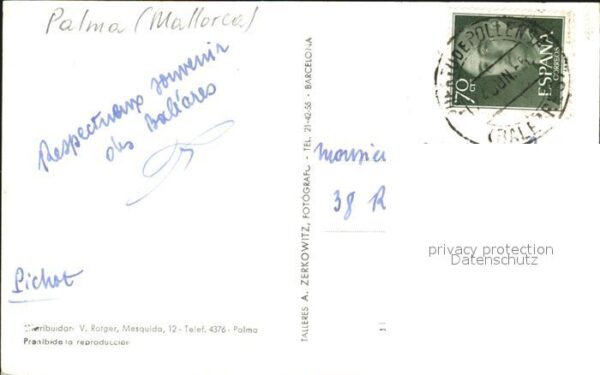 Palma (Mallorca)
Respectueux souvenir
des Baléares
Pichot
Distribuidor: V. Rotger, Mesquida, 12 - Telef. 4376 - Palma
Prohibida la reproducción
TALLERES A. ZERKOWITZ, FOTÓGRAFO - TEL. 21-42-55 - BARCELONA
monsie
38 R
70
CT
ESPAÑA
CORREOS
PUERTO DE POLLEN
JUN
(BALEARES)
privacy protection
Datenschutz